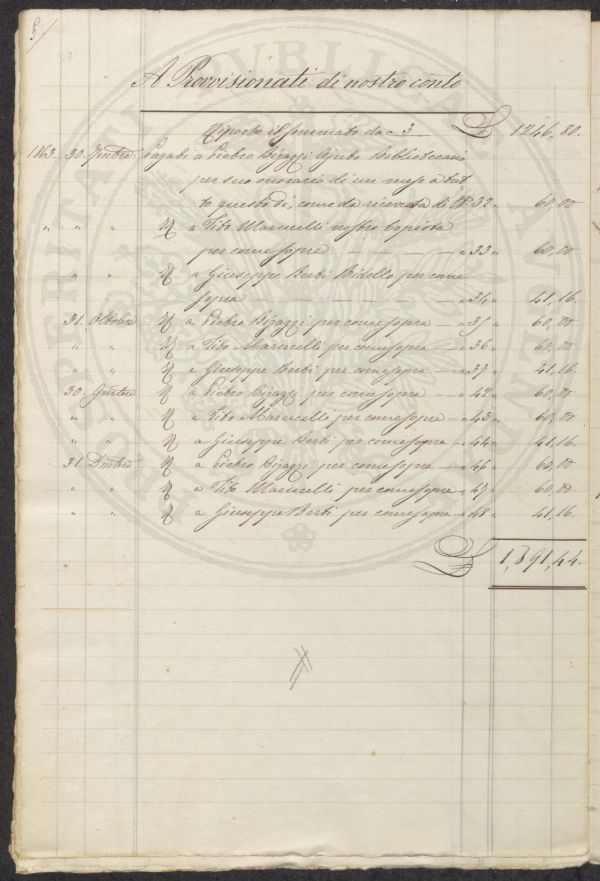 5
A Provvisionati di nostro conto
Riporto il sommato da c 3 £ 1246,80.
1863. 30. Settbre Pagati a Pietro Bigazzi Ajuto Bibliotecario
per suo onorario di un mese a tut-
to questo dì, come da ricevuta di N° 32 „ 60,00
„ „ „ R a Tito Marucelli nostro Copista
per come sopra — „ 33 „ 60,00
„ „ R a Giuseppe Berti Bidello per come
sopra — „ 34 „ 41,16.
31. Ottobre R a Pietro Bigazzi per come sopra — „ 35 „ 60,00
„ „ R a Tito Marucelli per come sopra — „ 36 „ 60,00
„ „ R a Giuseppe Berti per come sopra — „ 37 „ 41,16
30. R a Pietro Bigazzi per come sopra — „ 42 „ 60,00
„ „ R a Tito Marucelli per come sopra — „ 43 „ 60,00
„ „ R a Giuseppe Berti per come sopra — „ 44 „ 41,16.
31. Dmbre R a Pietro Bigazzi per come sopra — „ 46 „ 60,00
„ „ R a Tito Marucelli per come sopra „ 47 „ 60,00
„ „ R a Giuseppe Berti per come sopra „ 48 „ 41,16.
£ 1,891,44.